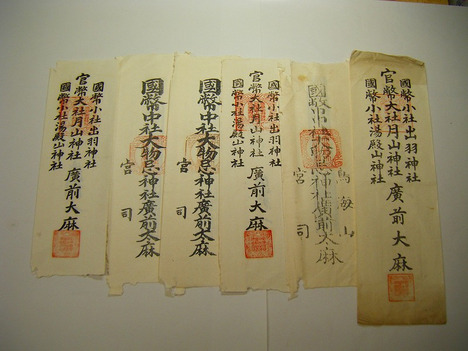 國幣小社出羽神社
官幣大社月山神社 廣前大麻
國幣小社湯殿山神社
鳥海山
國幣中社大物忌神社廣前太麻
宮司
國幣小社出羽神社
官幣大社月山神社 廣前大麻
國幣小社湯殿山神社
國幣中社大物忌神社廣前太麻
宮司
國幣中社大物忌神社廣前太麻
宮司
國幣小社出羽神社
官幣大社月山神社 廣前大麻
國幣小社湯殿山神社